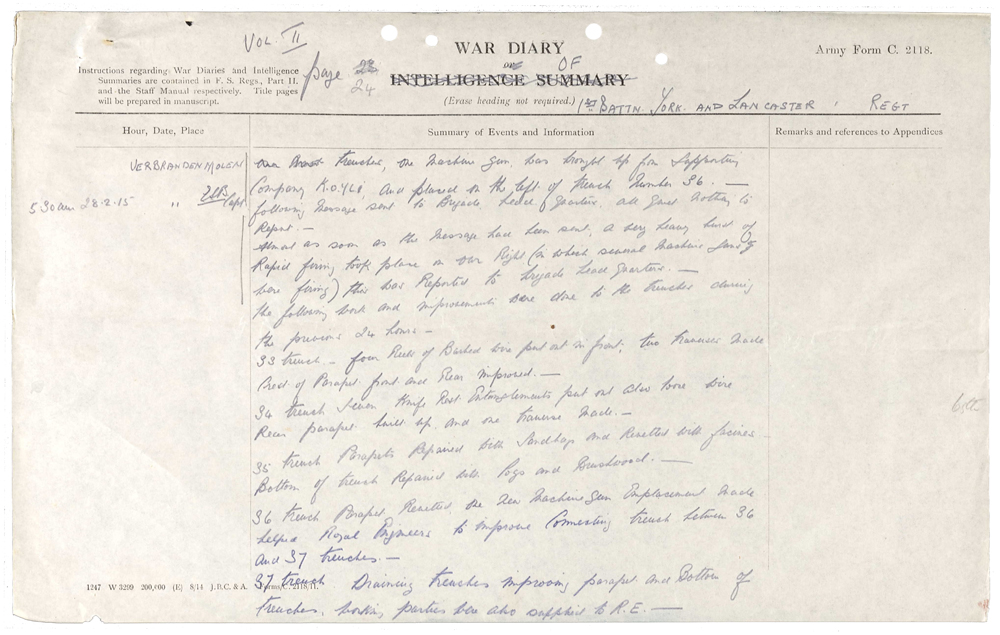 VOL. II
page 23
24
WAR DIARY
OF
OR
INTELLIGENCE SUMMARY
(Erase heading not required.)
Army Form C. 2118.
Instructions regarding War Diaries and Intelligence
Summaries are contained in F. S. Regs., Part II.
and the Staff Manual respectively. Title pages
will be prepared in manuscript.
1st BATTN. YORK. AND LANCASTER REGT
Hour, Date, Place
Summary of Events and Information
Remarks and references to Appendices
VERBRANDENMOLEN
5.30am 28.2.15 "
our trenches, one machine gun, was brought up from Supporting
Company K.O.Y.L.I. and placed on the left of trench Number 36. —
following Message sent to Brigade Head Quarters. all quiet nothing to
Report. —
Almost as soon as the Message had been sent, a very heavy burst of
Rapid firing took place on our Right (in which several Machine Guns
were firing) this was Reported to brigade head Quarters. —
the following work and improvements were done to the trenches during
the previous 24 hours —
33 trench. — four Reels of Barbed wire put out in front, two traverses Made
Bed of Parapet front and Rear improved. —
34 trench Seven Knife Rest Entanglements put out also loose wire
Rear parapet built up and one traverse Made. —
35 trench Parapets Repaired with Sandbags and Revetted with fascines
Bottom of trench Repaired with Pogs and Brushwood. —
36 trench Parapet Revetted one New Machine Gun Emplacement Made
helped Royal Engineers to improve Connecting trench between 36
and 37 trenches. —
37 trench Draining trenches improving parapet and Bottom of
trenches, working parties were also supplied to R.E. —
1247 W 3299 200,000 (E) 8/14 J.B.C. & A. Forms/C. 2118/11.